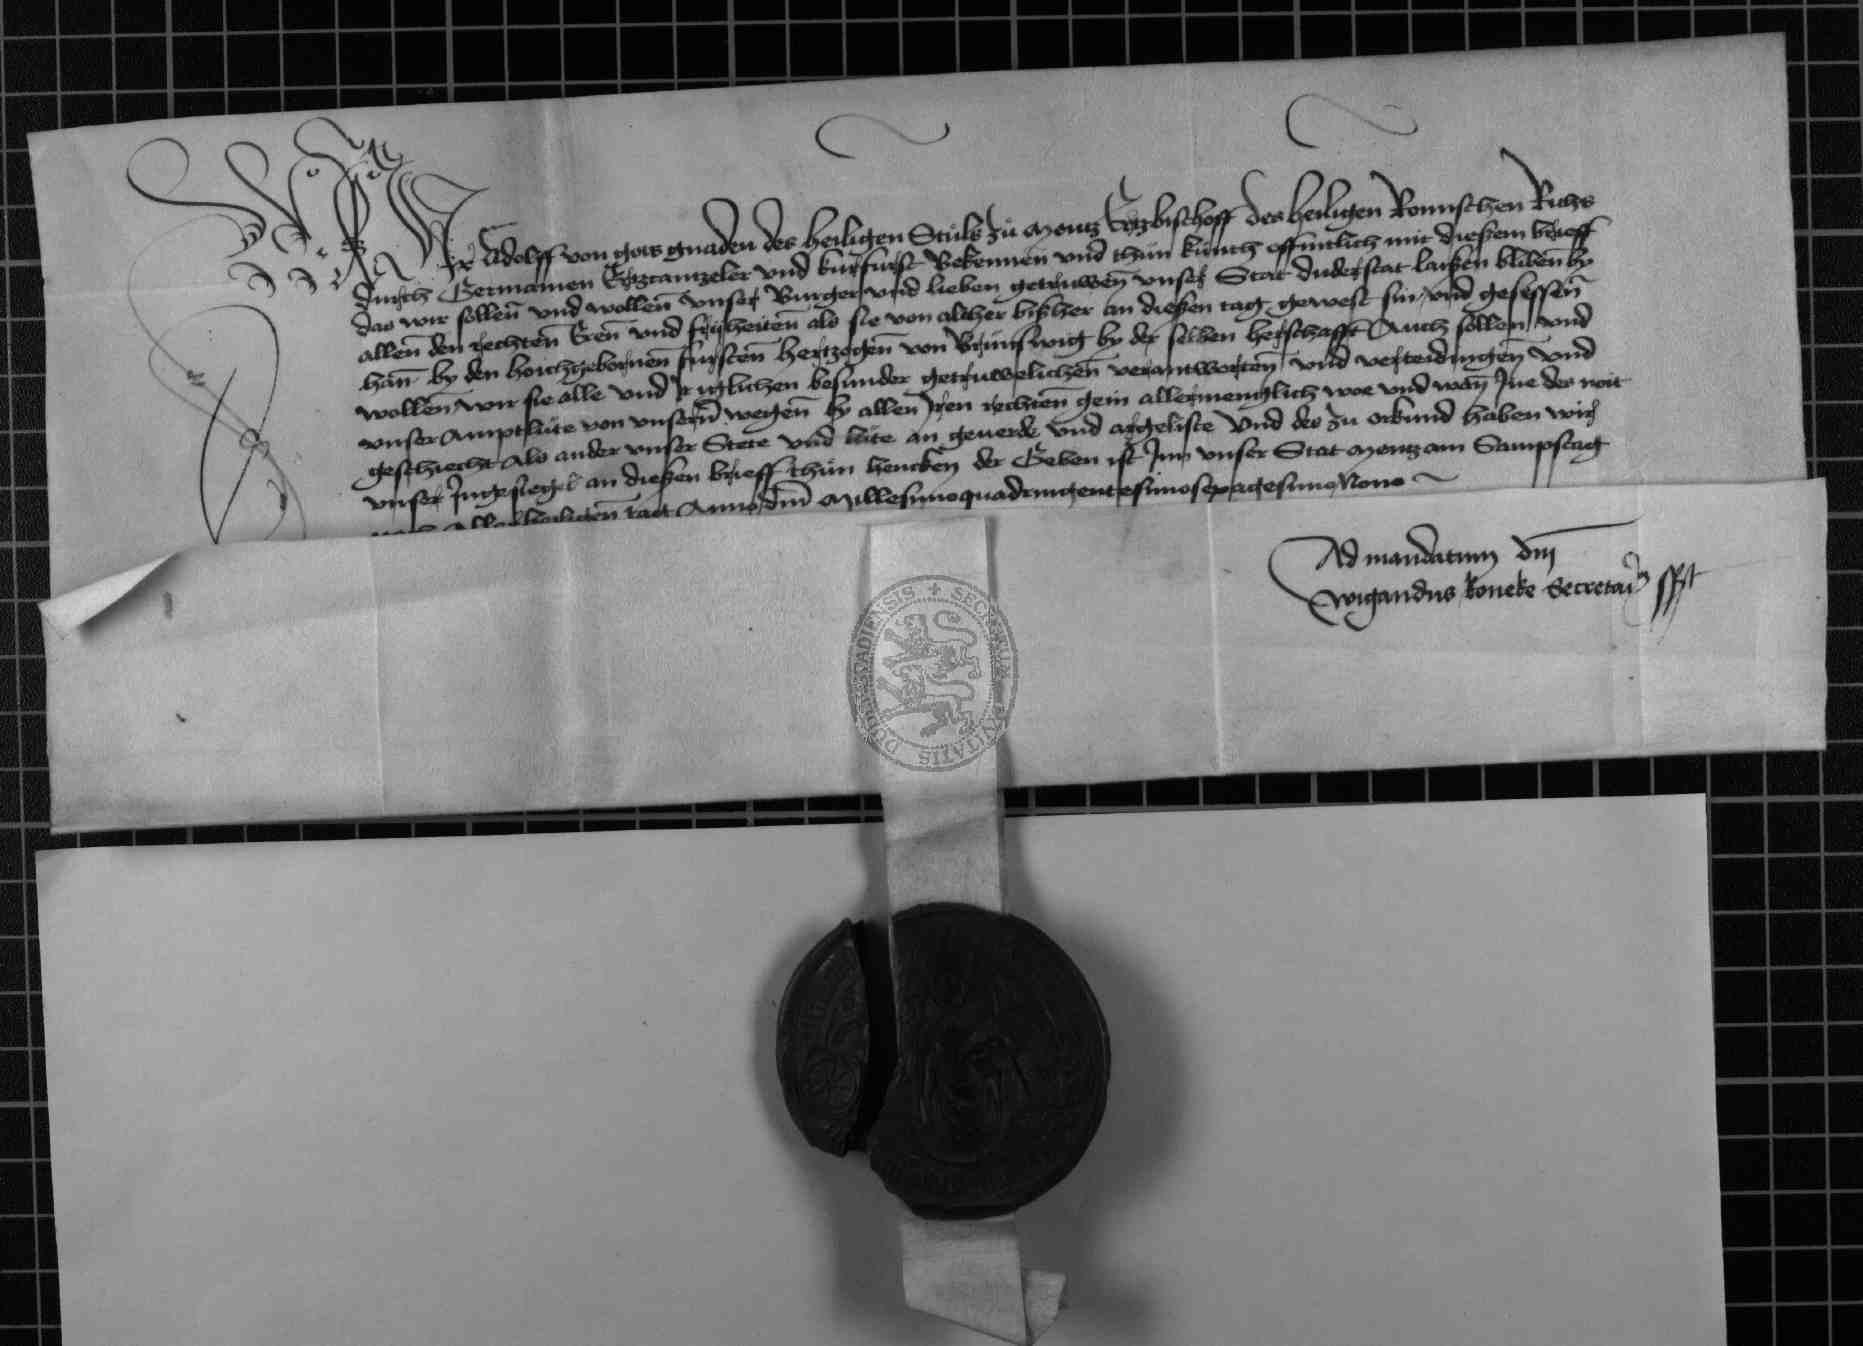 Wir Adolff von gots gnaden des heiligen Stuls zu Mentz Ertzbischoff des heiligen Romischen Richs
durch Germanien Ertzcantzeler vnd kurfurst Bekennen vnd thun kunth offintlich mit dießem brieff
das wir sollen vnd wollen vnser Burger vnd lieben getruwen vnser Stat duderstat laißen bliben by
allen den rechten Eren vnd friheiten als sie von alther bißher an dießen tag gewest sin vnd gesessen
han by den hoichgebornen fursten hertzogen von Brunswig by der selben herschafft Auch sollen vnd
wollen wir sie alle vnd iglichen besunder getruwelichen verantworten vnd verteidingen vnd
vnser Amptlute von vnsern wegen by allen iren rechten gein allermenglich woe vnd wan Ine des noit
geschiecht Als ander vnser Stete vnd lute an geuerde vnd argeliste Vnd des zu orkund haben wir
vnser Ingesiegel an dießen brieff thun hencken der Geben ist Inn vnser Stat Mentz am Sampstag
nach Allerheiligen tag Anno dm Millesimoquadringentesimosexagesimo Nono
Ad mandatum dm
Wigandus Koneke Secretari sst
SECRETUM CIVITATIS DUDERSTADIENSIS